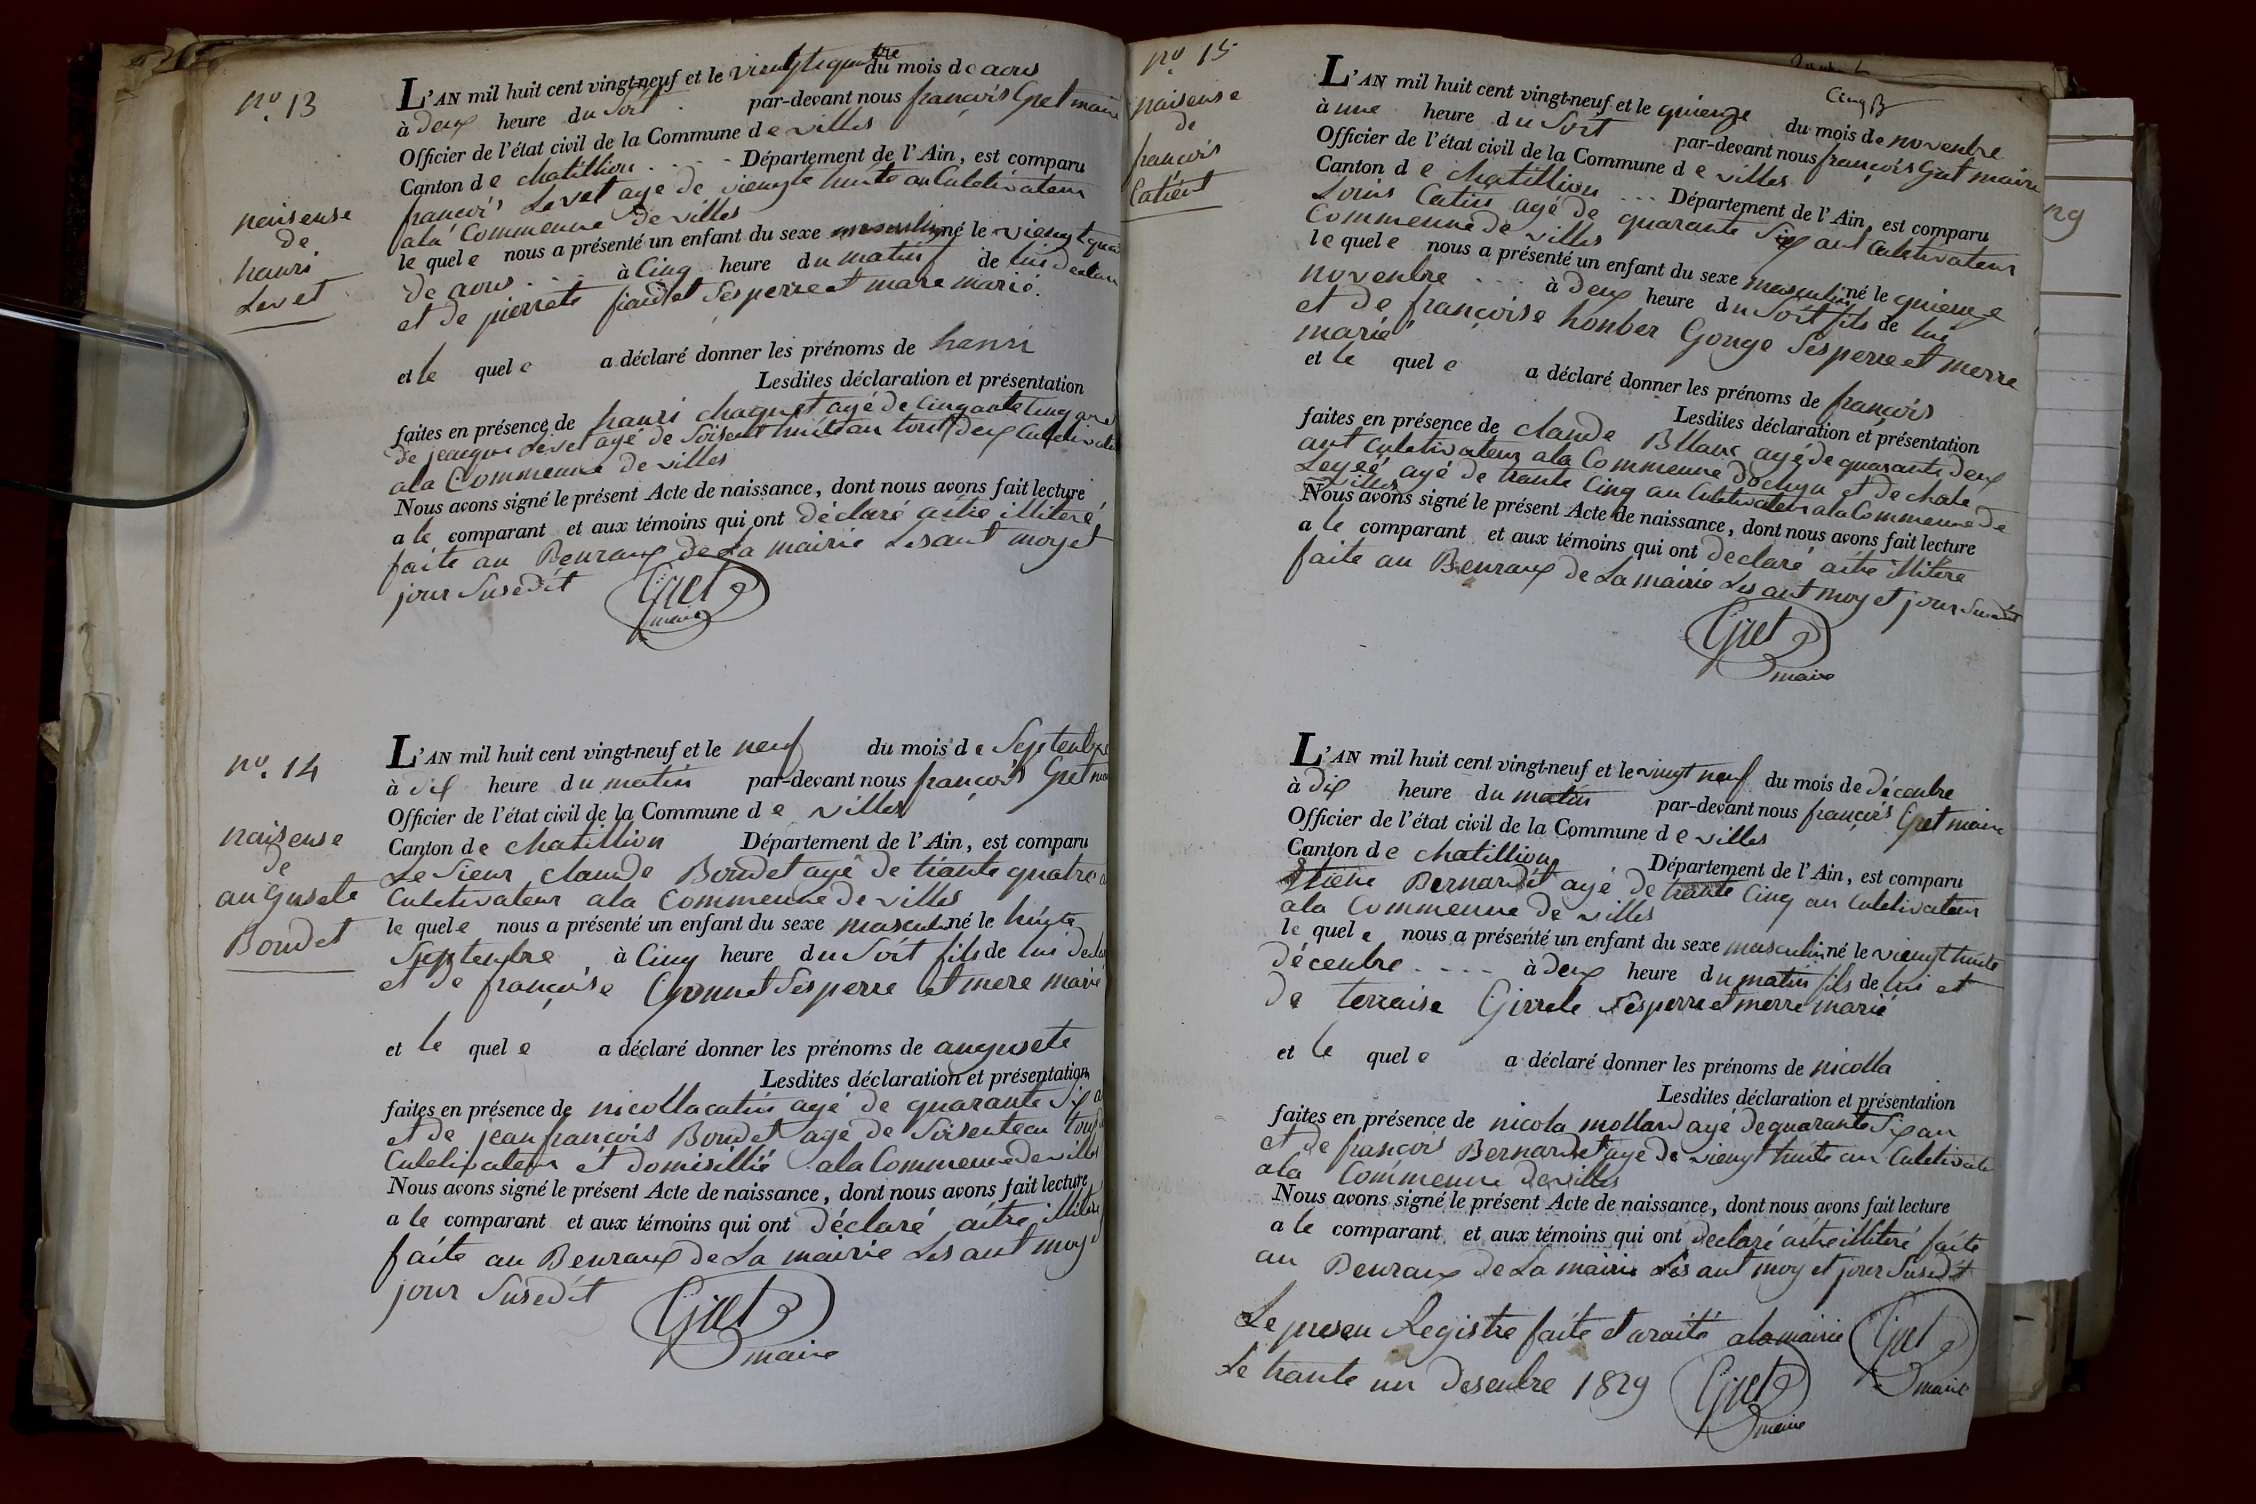 nº 13
naiseuse
de
hanri
Levet
L'AN mil huit cent vingt-neuf et le viengtequatre du mois de aous
à deux heure du Soit par-devant nous françois Gret maire
Officier de l'état civil de la Commune de villes
Canton de chatillion . - - - Département de l'Ain, est comparu
françois Levet agé de viengte huite an Culetivateur
ala Commenne de villes
le quel e nous a présenté un enfant du sexe masculin né le viengt qua
de aous . - - à Cinq heure du matinf de lui declara
et de pierrete fiardet Sesperre et mare marié.
et le quel e a déclaré donner les prénoms de hanri
Lesdites déclaration et présentation
faites en présence de hanri chagnet agé de Cinqante Cinq an et
de jeanque Levet agé de Soisent huite an tout deux Culetivate
ala Commenne de villes
Nous avons signé le présent Acte de naissance, dont nous avons fait lecture
a le comparant et aux témoins qui ont déclaré aitre illiteré
faite au Beuraux de La mairie Lesant moy et
jour Susedit
Gret
maire
nº. 14
naiseuse
de
augusete
Boudet
L'AN mil huit cent vingt-neuf et le neuf du mois de Septenbre
à dix heure du matin par-devant nous françois Gret mai
Officier de l'état civil de la Commune de villes
Canton de chatillion Département de l'Ain, est comparu
Le Sieur claude Boudet agé de trante quatre a
Culetivateur ala Commenne de villes
le quel e nous a présenté un enfant du sexe masculin né le huite
Septenbre à Cinq heure du Soit fils de lui decla
et de françoise Gonnet Sesperre et mere marié
et le quel e a déclaré donner les prénoms de augusete
Lesdites déclaration et présentation
faites en présence de nicolla catin agé de quarante Six a
et de jean françois Boudet agé de Soisente an tous
Culetivateur et domisillié ala Commenne de villes
Nous avons signé le présent Acte de naissance, dont nous avons fait lecture
a le comparant et aux témoins qui ont déclaré aitre illitere
faite au Beuraux de La mairie Les ant moy et
jour Susedit
Gret
maire
nº 15
naiseuse
de
françois
Catient
Cinq
L'AN mil huit cent vingt-neuf et le quienze du mois de novenbre
à une heure du Soit par-devant nous françois Gret maire
Officier de l'état civil de la Commune de villes
Canton de chatillion - - - Département de l'Ain, est comparu
Louis Catin agé de quarante Six ant Culetivateur
Commenne de villes
le quel e nous a présenté un enfant du sexe masculin né le quienze
novenbre - - - à deux heure du Soit fils de lui
et de françoise honber Gouge Sesperre et merre
marié
et le quel e a déclaré donner les prénoms de françois
Lesdites déclaration et présentation
faites en présence de claude Bllanc agé de quarante deux
ant Culetivateur ala Commenne dochya et de charle
Leyré agé de trante Cinq an Culetivateur ala Commenne de
villes
Nous avons signé le présent Acte de naissance, dont nous avons fait lecture
a le comparant et aux témoins qui ont declaré aitre illitere
faite au Beuraux de La mairie Les ant moy et jour Susedit
Gret
maire
L'AN mil huit cent vingt-neuf et le vingt neuf du mois de décenbre
à dix heure du matin par-devant nous françois Gret maire
Officier de l'état civil de la Commune de villes
Canton de chatillion Département de l'Ain, est comparu
Bernardet agé de trante Cinq an Culetivateur
ala Commenne de villes
le quel e nous a présenté un enfant du sexe masculin né le viengt huite
décenbre - - - - à deux heure du matin fils de lui et
de terraise Girrele Sesperre et merre marié
et le quel e a déclaré donner les prénoms de nicolla
Lesdites déclaration et présentation
faites en présence de nicola mollard agé de quarante Six an
et de françois Bernardet agé de viengt huite an Culetivate
ala Commenne de villes
Nous avons signé le présent Acte de naissance, dont nous avons fait lecture
a le comparant et aux témoins qui ont declaré aitre illiteré faite
au Beuraux de La mairie Les ant moy et jour Susedit
Le presen Registre faite et araité ala mairie Gret
maire
Le trante un desenbre 1829 Gret
maire